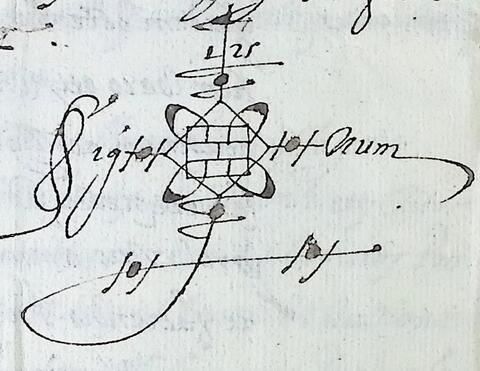 125
Sig num